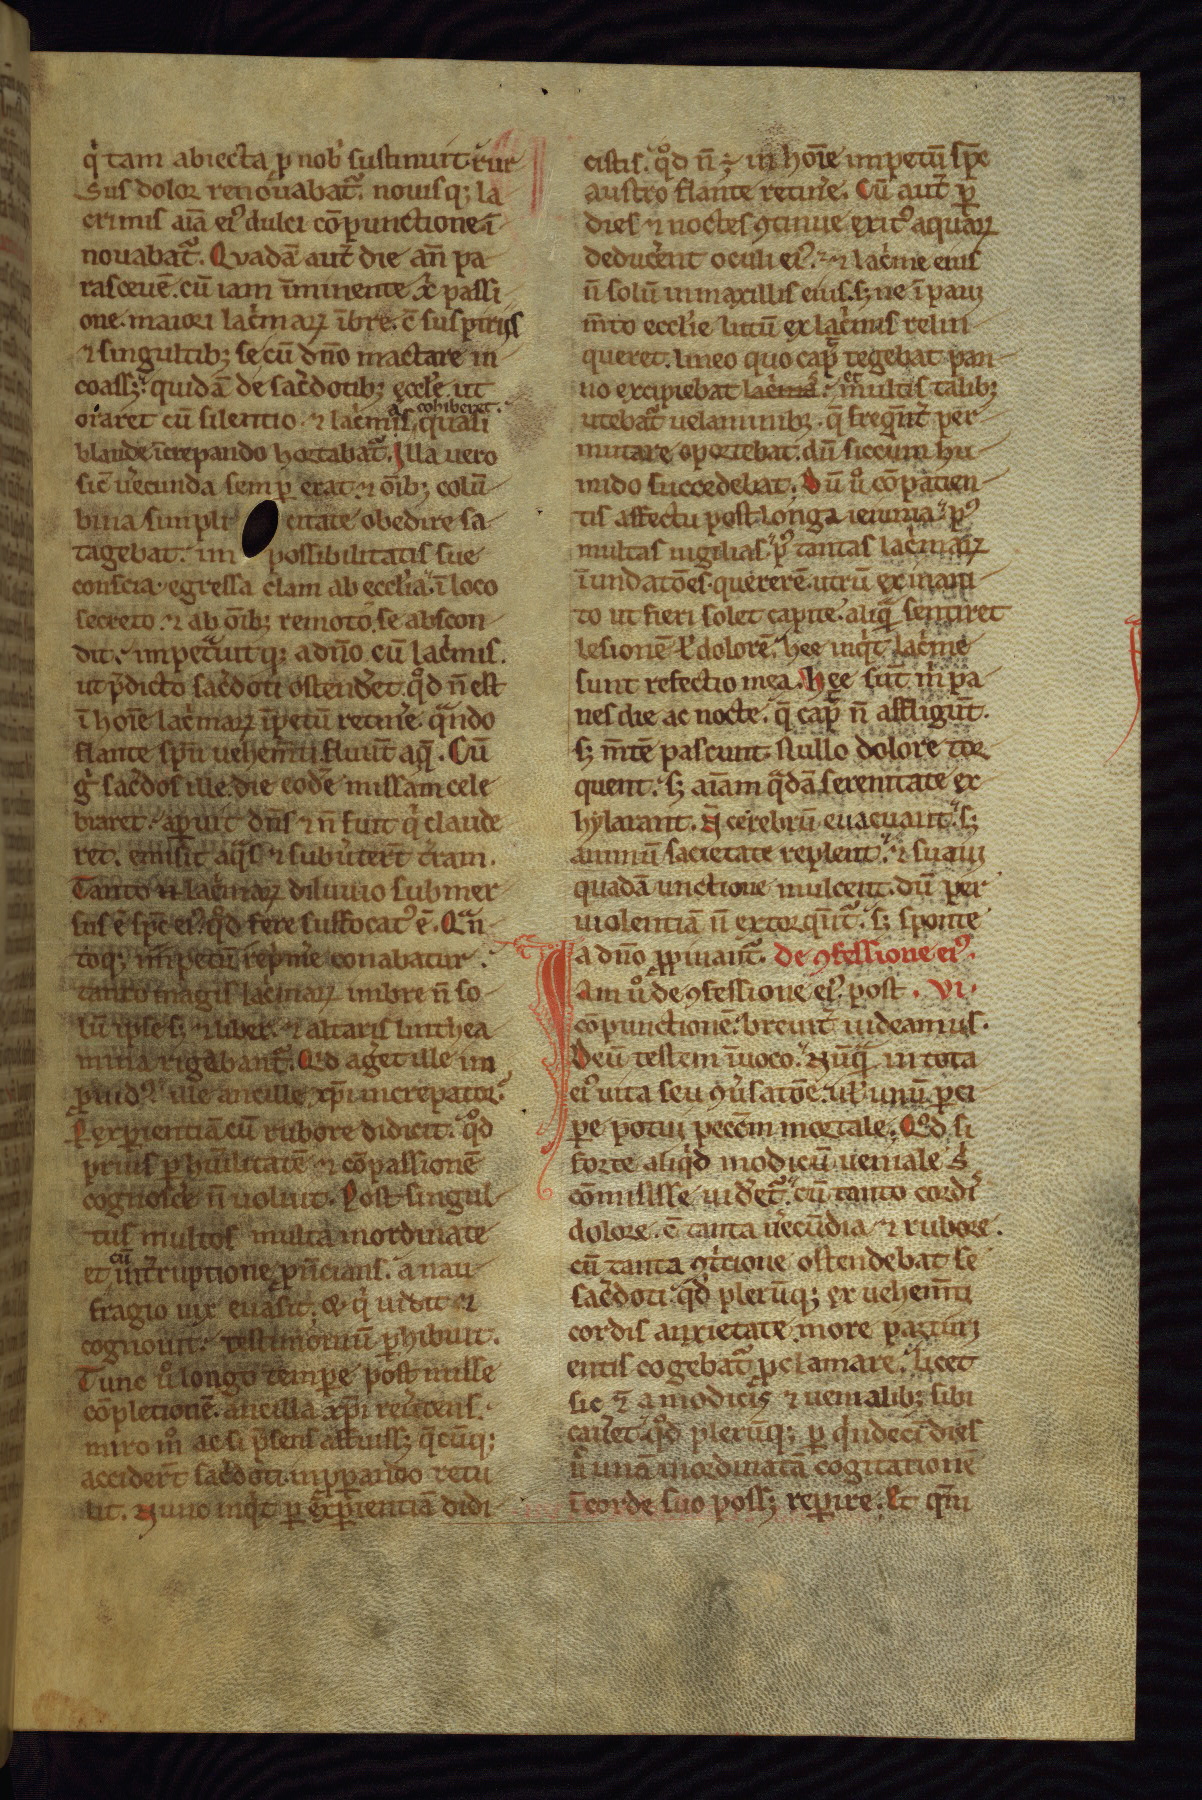 q̇ tam abiecta ꝓ nob̛ sustinuit. rur
sus dolor̛ renouabat᷑. nouisq; la
crimis aīa ei᷒ dulci cōpunctione ī
nouabat᷑. Quadā aut̄ die an̄ pa
rasceuē. cū iam īminente xp̄i passi
one. maiori lac̛maꝝ ībre. c̄ suspiriis
⁊ singultib; se cū dn̄o mactare in
coass;. quidā de sac̛dotib; eccl̛e ut
oraret cū silentio ⁊ lac̛mas cohiberet. quasi
blande īcrepando hortabat᷑. Illa uero
sic̄ ue̛cunda semꝑ erat. ⁊ oīb; colū
bina simpli citate obedire sa
tagebat. im possibilitatis sue
conscia. egressa clam ab eccl̛ia. ī loco
secreto. ⁊ ab oīb; remoto. se abscon
dit. impetrauitq; a dn̄o cū lac̛mis.
ut p̄dicto sac̛doti ostende̛t. qd̛ n̄ est
ī hoīe lac̛maꝝ īpetū retine̛. qn̄do
flante sp̄u uehem̄ti fluūt aq̄. Cū
g̊ sac̛dos ille. die eodē missam cele
braret. aꝑuit dn̄s ⁊ n̄ fuit q̇ claude
ret. emisit aq̄s ⁊ subưtert̄ tr̄am.
Tanto n̄ lac̛maꝝ diluuio submer
sus ē sp̄c ei᷒. qd̛ fere suffocat᷒ ē. Quā
toq; īmpetū rep̛me̛ conabatur.
tanto magis lac̛maꝝ imbre n̄ so
lū ip̄se s; ⁊ liber. ⁊ altaris linthea
mina rigabant᷑. Qd̛ age̛t ille im
ꝓuid᷒. ille ancille xp̄i increpator.
Ꝑ exꝑientiā cū rubore didicit. qd̛
prius ꝑ hūilitatē ⁊ cōpassionē
cognosce̛ n̄ uoluit. Post singul
tus multos multa inordinate
et cū int̛ruptione ꝓn̄cians. a nau
fragio uix euasit. ⁊ q̇ uidit ⁊
cognouit. testimoniū ꝑhibuit.
Tunc ưo longo temꝑe post misse
cōpletionē. ancilla xp̄i reue̛tens.
miro mơ ac si p̛sens affuiss; q̄cūq;
accider̄t sac̛doti. inꝓpando retu
lit. Nunc inq̇t ꝑ exꝑientiā didi
cistis. qd̛ n̄ ÷ in hoīe impetū sp̄c
austro flante retine̛. Cū aut̄ ꝑ
dies ⁊ noctes ꝯtinue exit᷒ aquaꝝ
deduce̛nt oculi ei᷒. ⁊ lac̛me eius
n̄ solū in maxillis eius. s; ne ī paui
m̄to eccl̛ie lutū ex lac̛mis relin
queret. lineo quo cap̛ tegebat pan
no excipiebat lac̛mas. et multis talib;
utebat᷑ uelaminib;. q̄ freqūt per
mutare oportebat. dū siccum hu
mido succedebat. Dū ưo cōpatien
tis affectu post longa ieiunia. p᷒
multas uigilias. p᷒ tantas lac̛maꝝ
īundatōes. quererē. utrū ex inani
to ut fieri solet capite. aliq̄ sentiret
lesionē ł dolorē. hee inq̇t lac̛me
sunt refectio mea. Hee sūt m̛ pa
nes die ac nocte. q̄ cap̛ n̄ affligūt.
s; m̄tē pascunt. Nullo dolore tor
quent. s; aīam q̄dā serenitate ex
hylarant. N̄ cerebrū euacuant. s;
animū sacietate replent. ⁊ suaui
quadā unctione mulcent. dū per
uiolentiā n̄ extorquēt᷑. s; sponte
a dn̄o ꝓpinant᷑. De ꝯfessione ei᷒.
Iam ưo de ꝯfessione ei᷒. post .VI.
cōpunctionē. breuit̄ uideamus.
Deū testem īuoco. Nūq̄ in tota
ei᷒ uita seu ꝯưsatōe. ul̛ unū ꝑci
pe potui pecc̄m mortale. Qd̛ si
forte aliq̇d modicū ueniale s̛
cōmisisse uide̛t᷑. cū tanto cordi
dolore. c̄ tanta ue̛cūdia ⁊ rubore.
cū tanta ꝯt̛cione ostendebat se
sac̛doti. qd̛ plerūq; ex uehem̄ti
cordis anxietate. more parturi
entis cogebat᷑ ꝓclamare. licet
sic ⁊ a modicis ⁊ uenialib; sibi
caue̛t. qd̛ plerūq; ꝑ q̇ndeci dies
n̄ unā inordinatā cogitationē
ī corde suo poss; reꝑire. Et qm̄